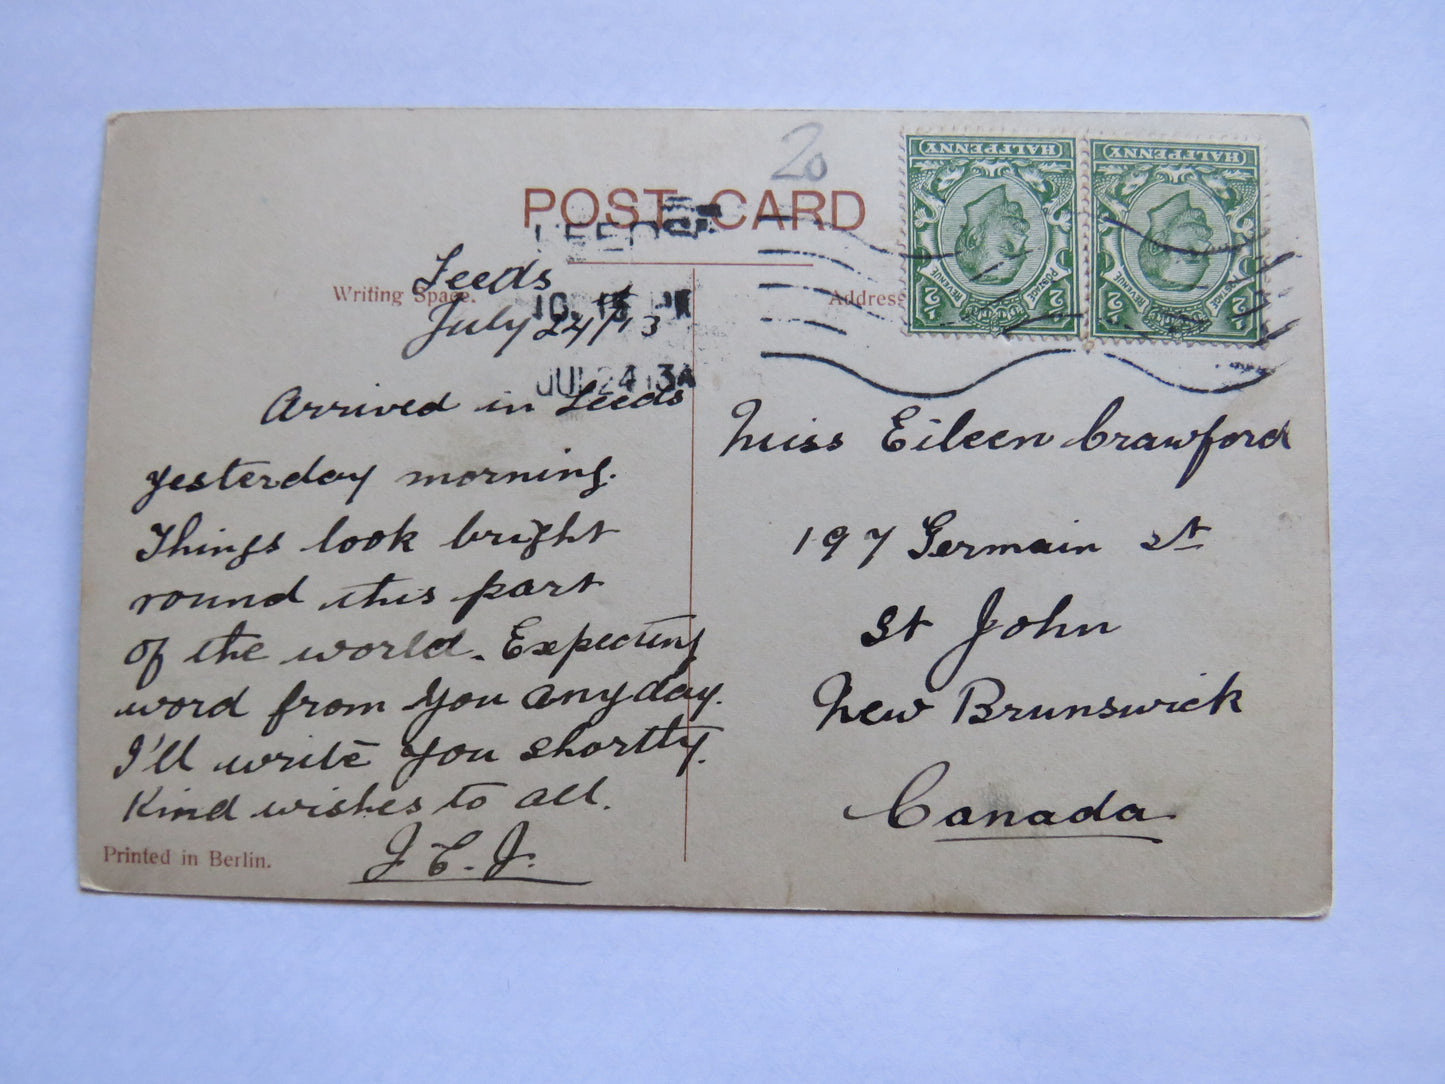 20
POST CARD
LEEDS
10. 15 PM
JUL 24 13
Writing Space.
Address
HALFPENNY
HALFPENNY
POSTAGE
REVENUE
POSTAGE
REVENUE
1/2
1/2
1/2
1/2
Leeds
July 24/13
Arrived in Leeds
yesterday morning.
Things look bright
round this part
of the world. Expecting
word from you any day.
I'll write you shortly.
Kind wishes to all.
Printed in Berlin.
Miss Eileen Crawford
197 Germain St
St John
New Brunswick
Canada